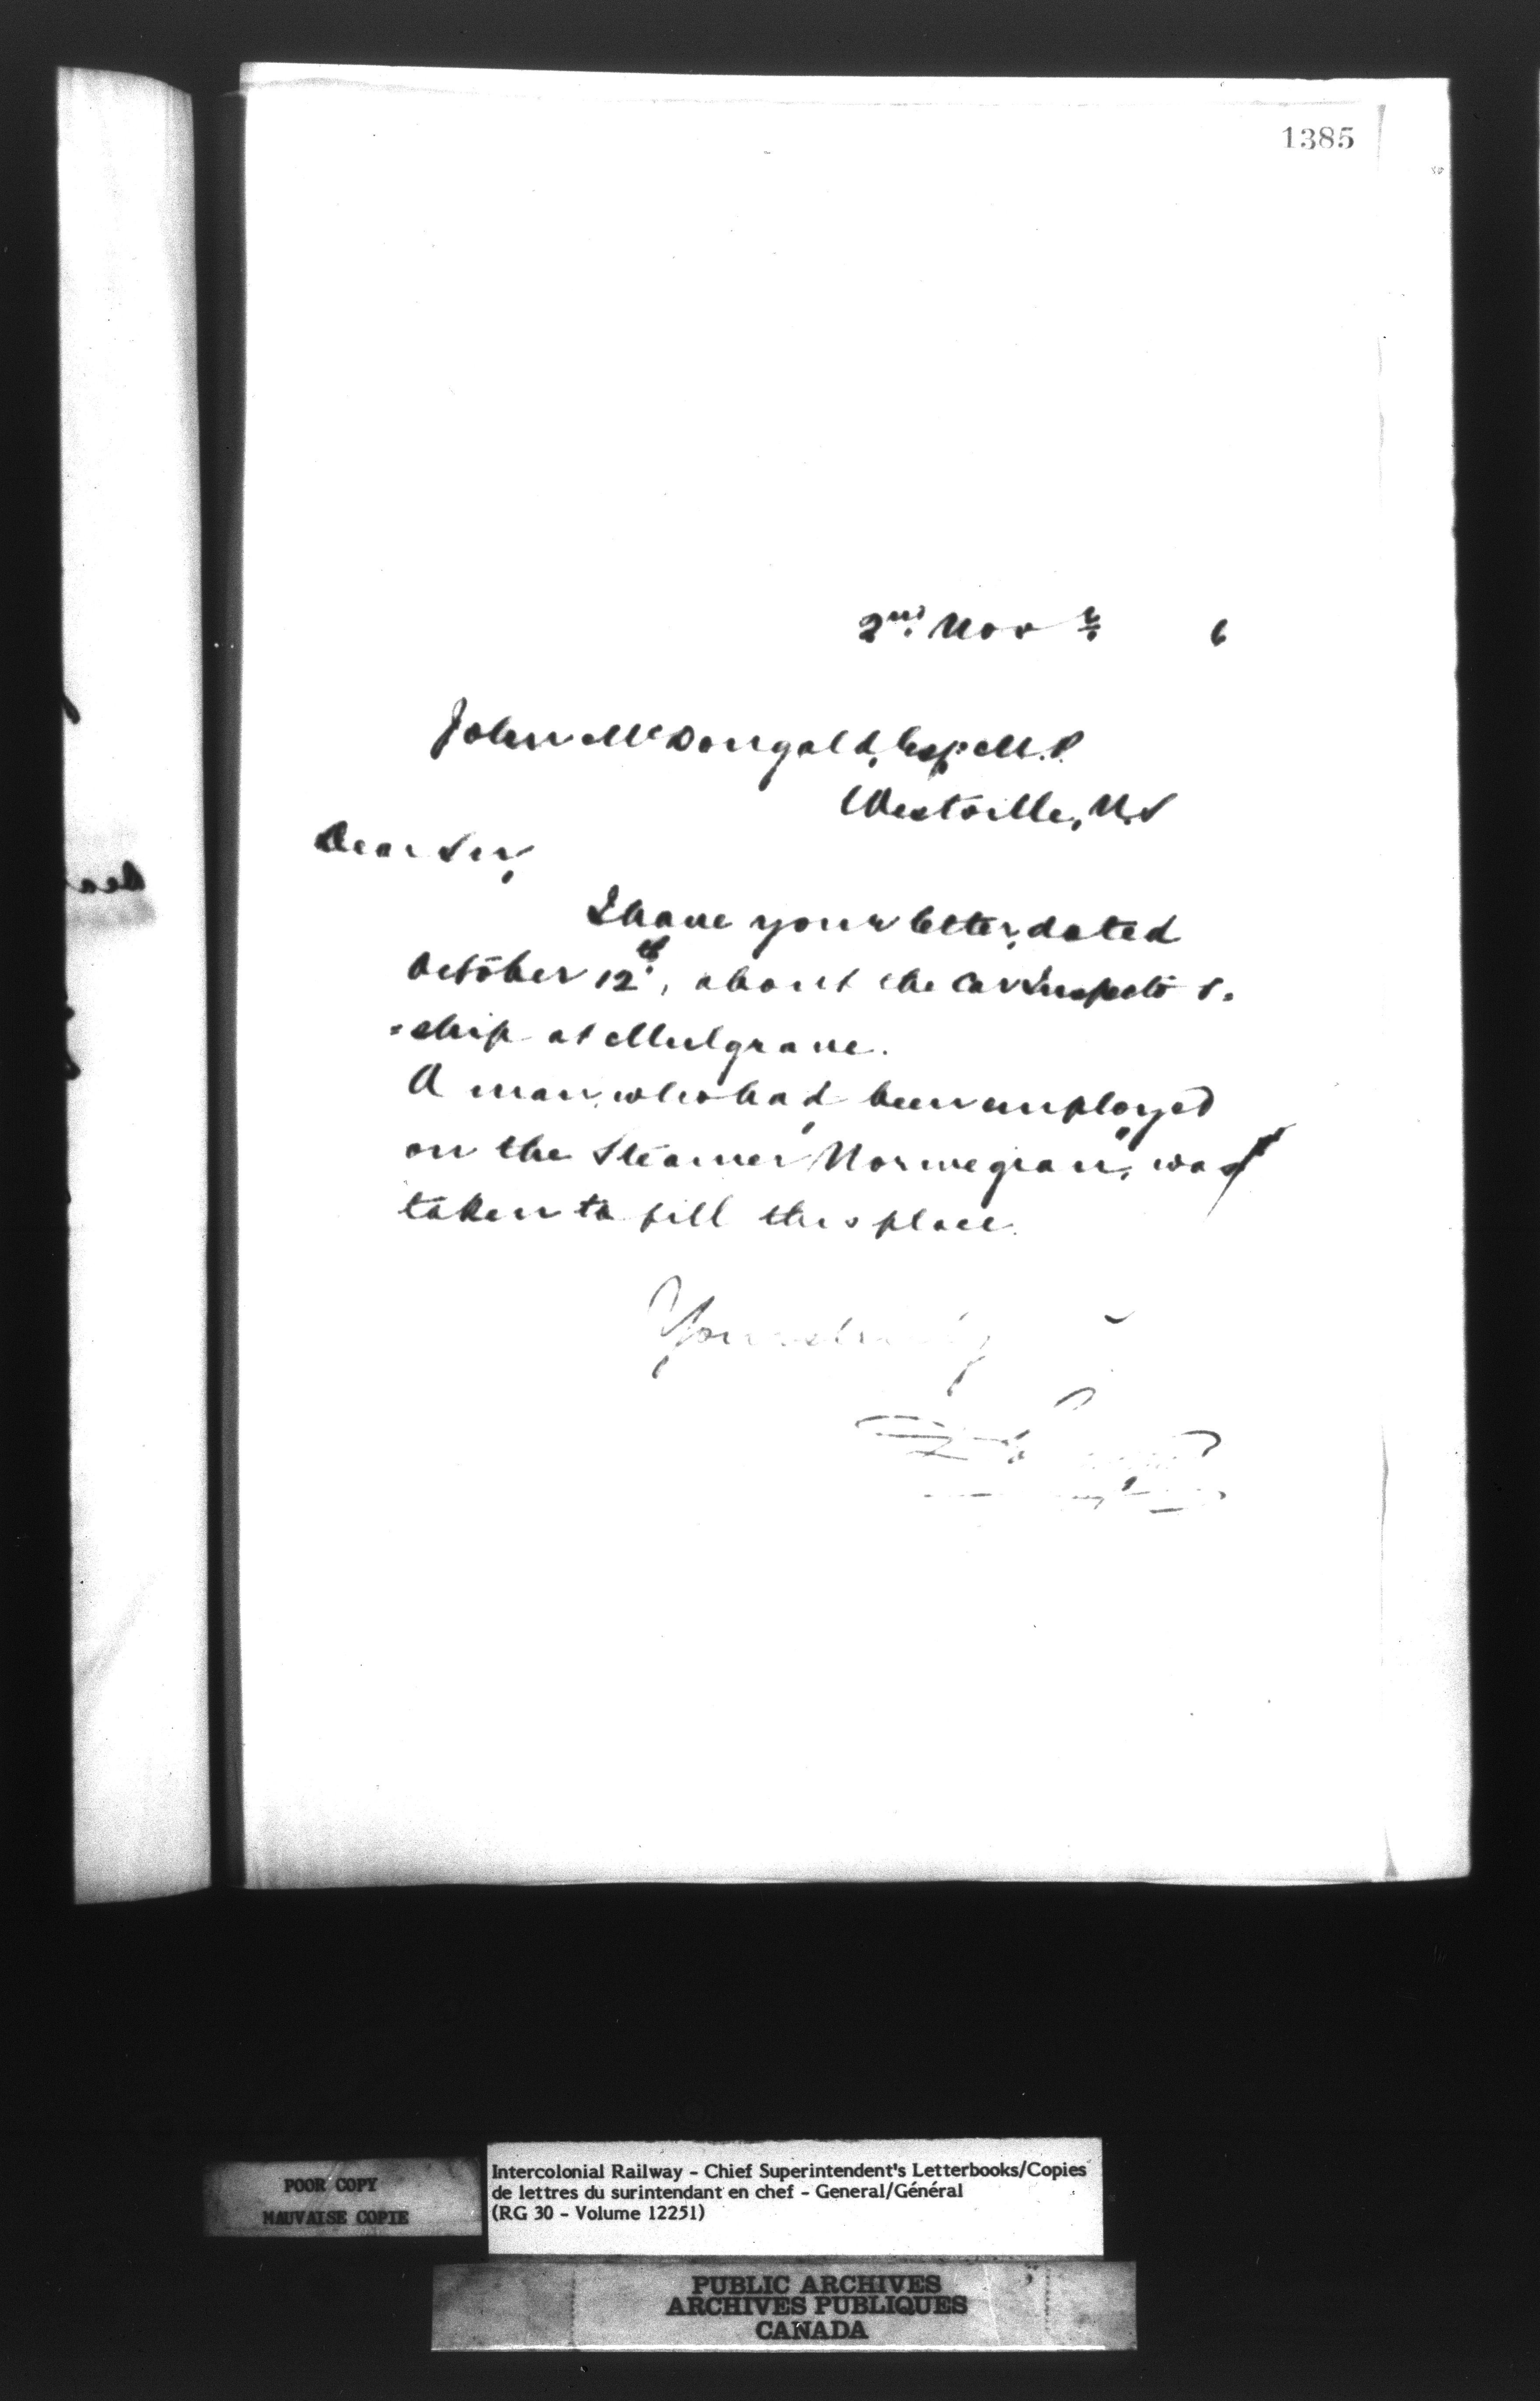 1385
2nd Novr 6
John McDougald, Esq. M.P.
Westville, N.S
Dear Sir,
I have your letter, dated
October 12th, about the Car Inspector
=ship at Mulgrave.
A man, who had been employed
on the Steamer "Norwegian", was
taken to fill this place.
Yours truly
POOR COPY
MAUVAISE COPIE
Intercolonial Railway - Chief Superintendent's Letterbooks/Copies
de lettres du surintendant en chef - General/Général
(RG 30 - Volume 12251)
PUBLIC ARCHIVES
ARCHIVES PUBLIQUES
CANADA